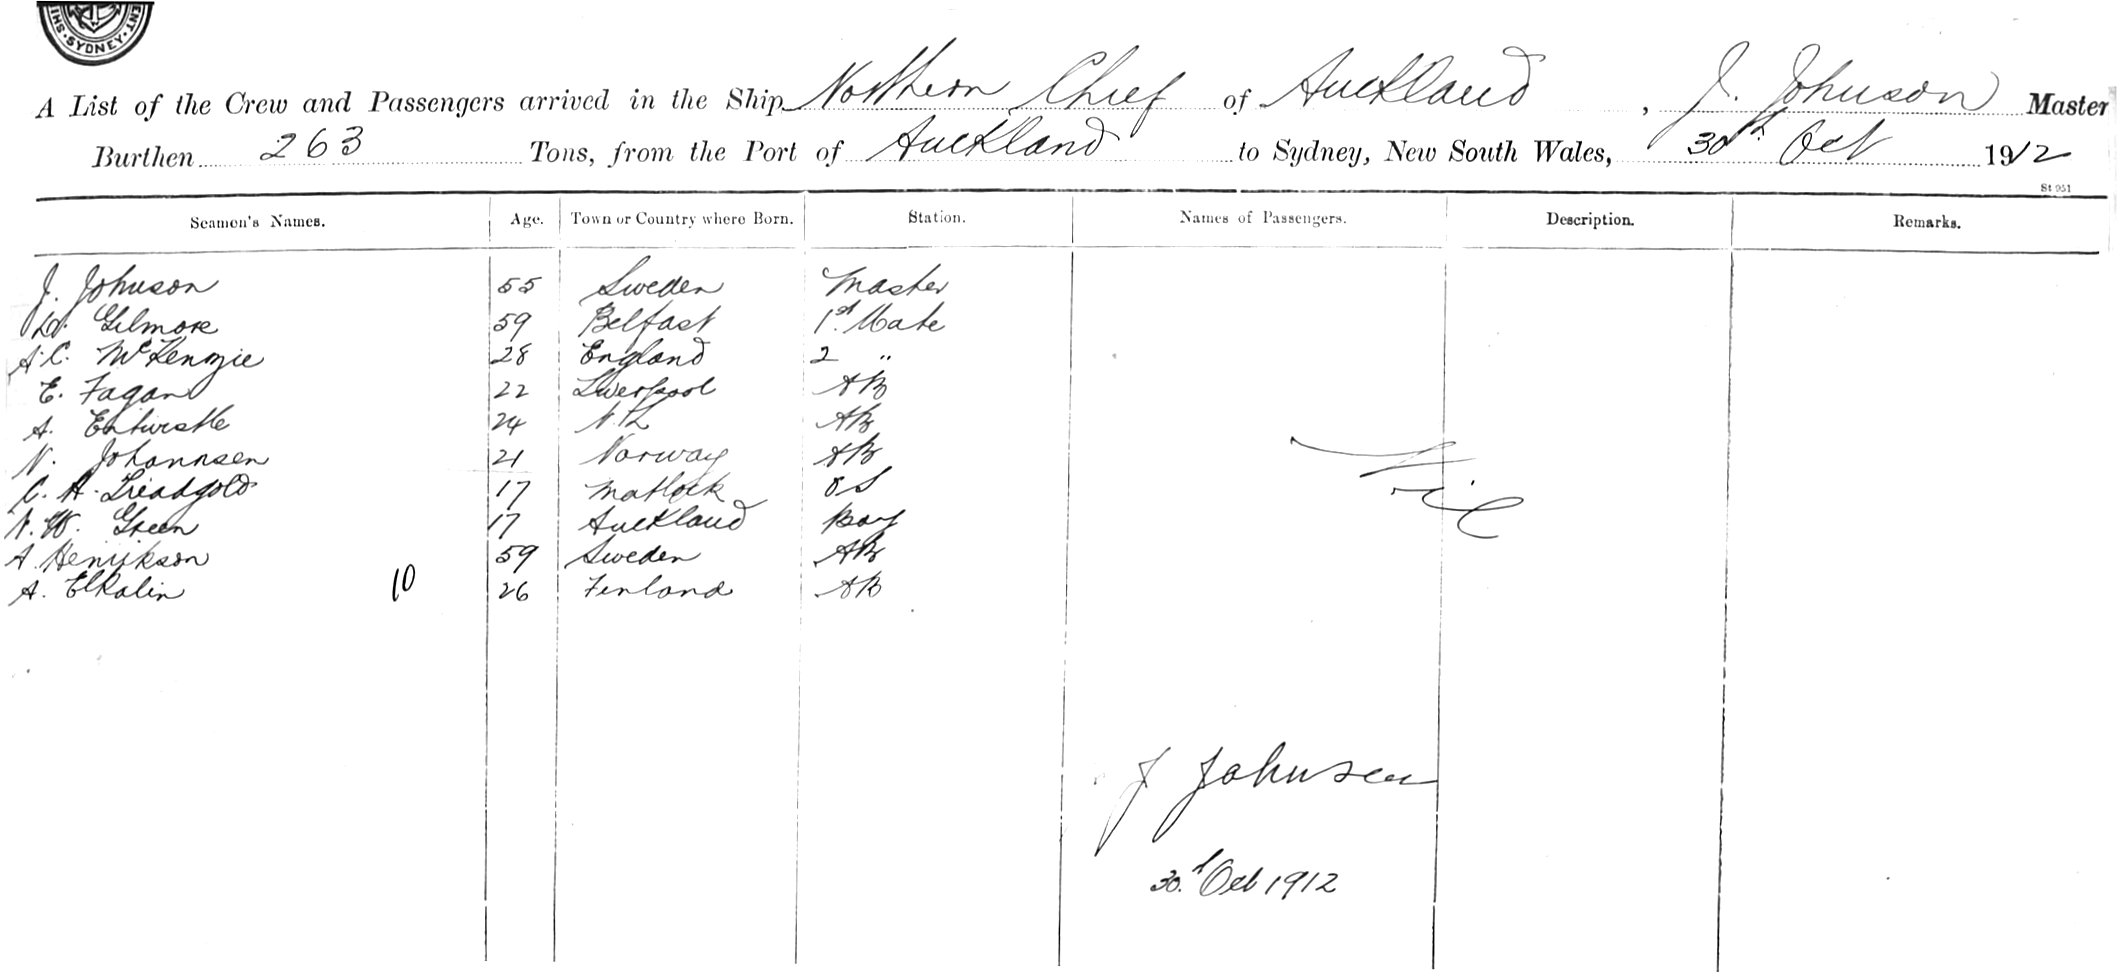 SYDNEY
A List of the Crew and Passengers arrived in the Ship Northern Chief of Auckland, J. Johnson Master
Burthen 263 Tons, from the Port of Auckland to Sydney, New South Wales, 30th Oct 1912
St 951
Seamen's Names. Age. Town or Country where Born. Station. Names of Passengers. Description. Remarks.
J. Johnson 55 Sweden Master
Gilmore 59 Belfast 1st Mate
A. C. McKenzie 28 England 2 "
E. Fagan 22 Liverpool AB
A. Entwistle 24 N.Z. AB
N. Johannsen 21 Norway AB
C. A. Treadgold 17 Matlock OS
N. W. Green 17 Auckland Boy
A. Henrikson 59 Sweden AB
A. Elkalin 10 26 Finland AB
Nil
J Johnson
30th Oct 1912